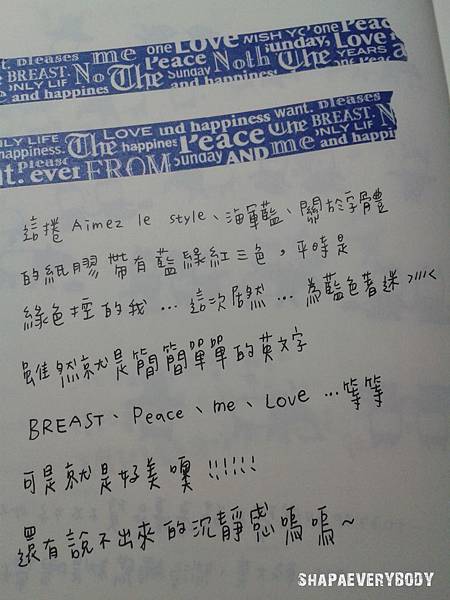 one LOVE WISH YO
pleases me Peace Sunday, Love
BREAST. No The Sunday Noth The YEARS
ONLY LIF and happines
and happiness
ONLY LIFE The LOVE und happiness want. pleases
happiness. happines Peace The BREAST. N
pleas Sunday me ONLY LIF
t. ever FROM AND and happi
這捲 Aimez le style、海軍藍、關於字體
的紙膠帶有藍綠紅三色，平時是
綠色控的我…這次居然…為藍色著迷>////<
雖然就是簡簡單單的英文字
BREAST、Peace、me、Love…等等
可是就是好美噢!!!!!!
還有說不出來的沉靜感嗚嗚~
SHAPAEVERYBODY